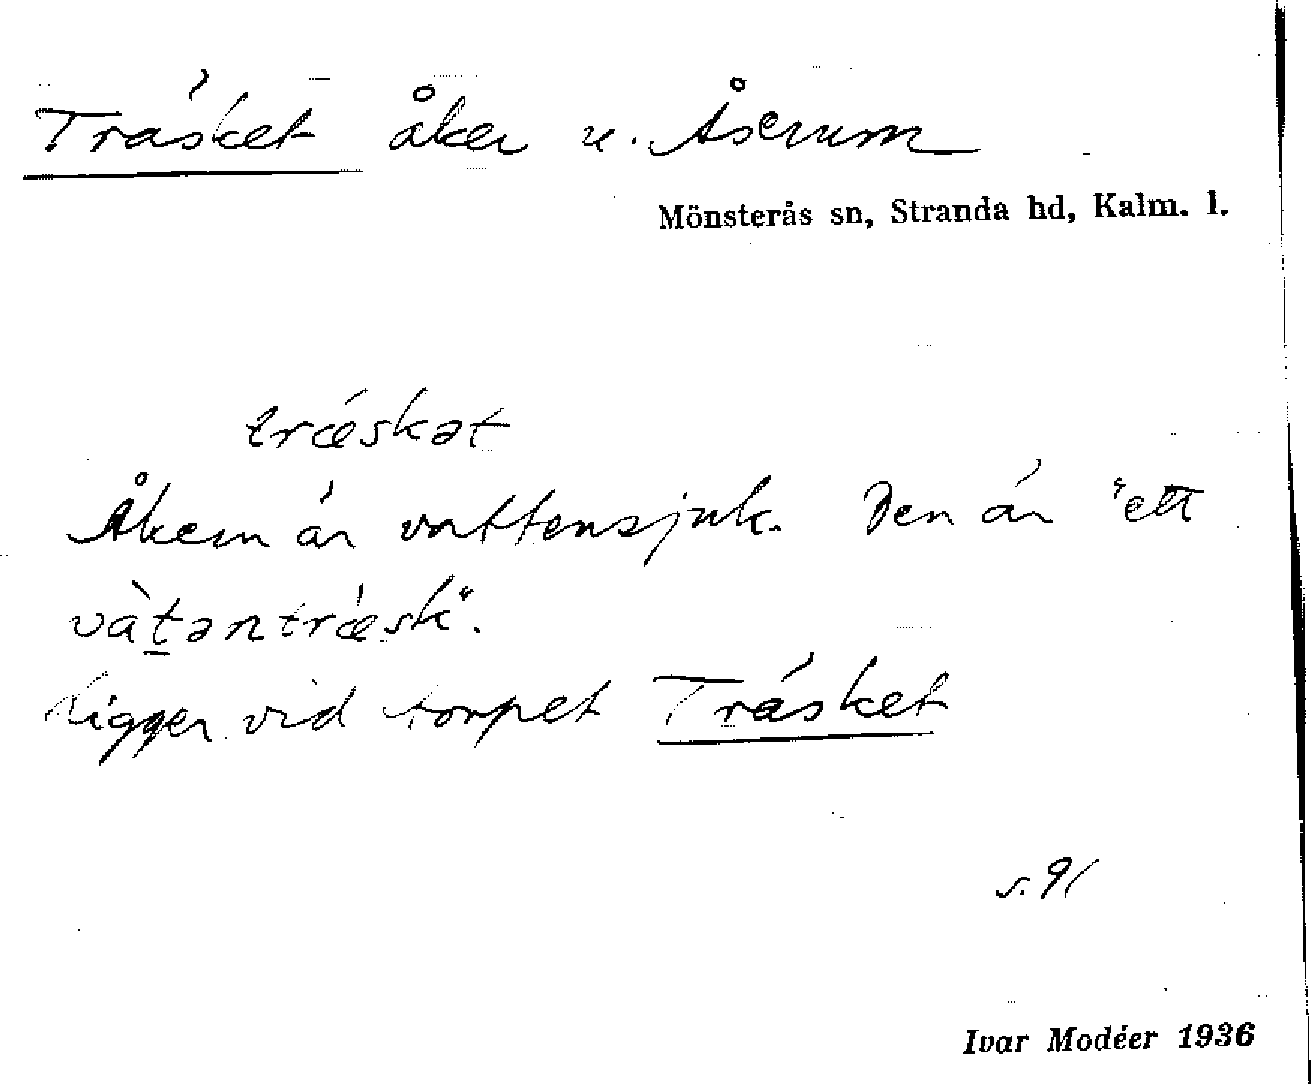 Träsket åker u. Åserum
Mönsterås sn, Stranda hd, Kalm. l.
træ´skət
Åkern är vattensjuk. Den är "ett
và̱təntræsk".
Ligger vid torpet Träsket
s. 91
Ivar Modéer 1936